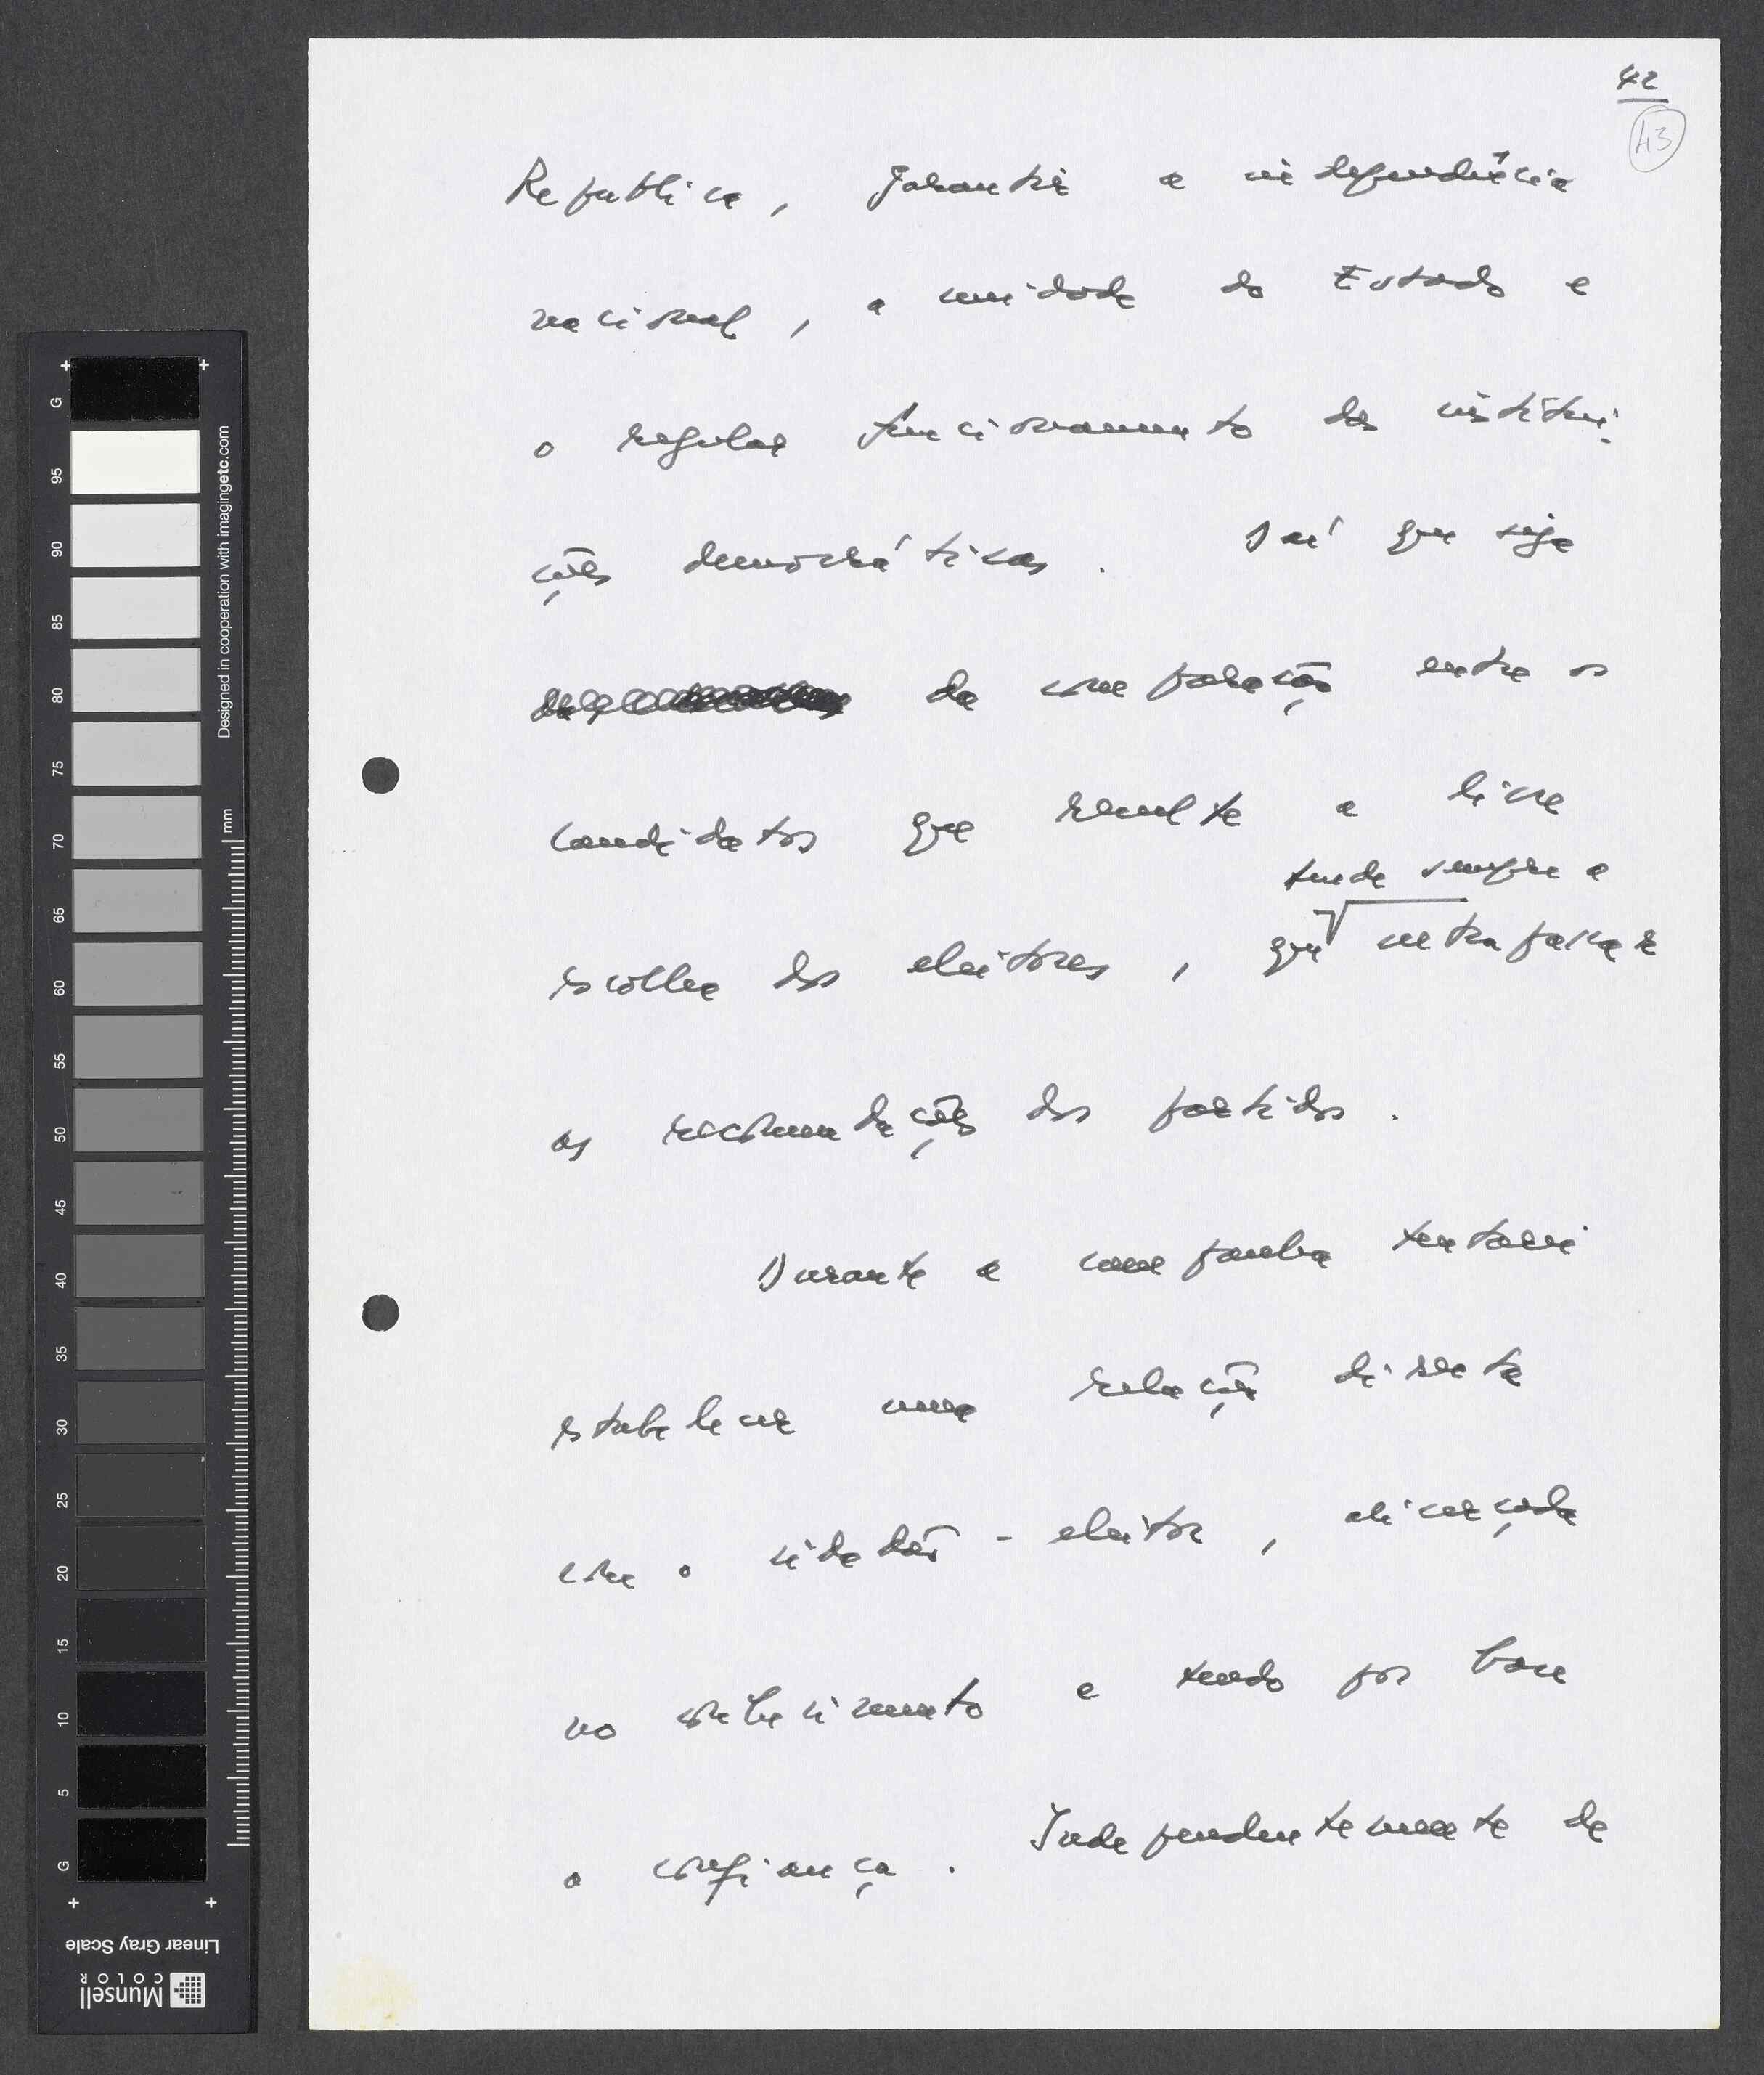 42
43
Republica, garantir a independência
nacional, a unidade do Estado e
o regular funcionamento das institui-
ções democráticas. Daí que seja
da comparação entre os
candidatos que resulte a livre
tende sempre a
escolha dos eleitores, que ultrapassar
as recomendações dos partidos.
Durante a campanha tentarei
estabelecer uma relação directa
com o cidadão-eleitor, alicerçada
no conhecimento e tendo por base
a confiança. Independentemente de
G
95
90
85
80
75
70
65
60
55
50
45
40
35
30
25
20
15
10
5
G
mm
Designed in cooperation with imagingetc.com
Linear Gray Scale
Munsell
COLOR